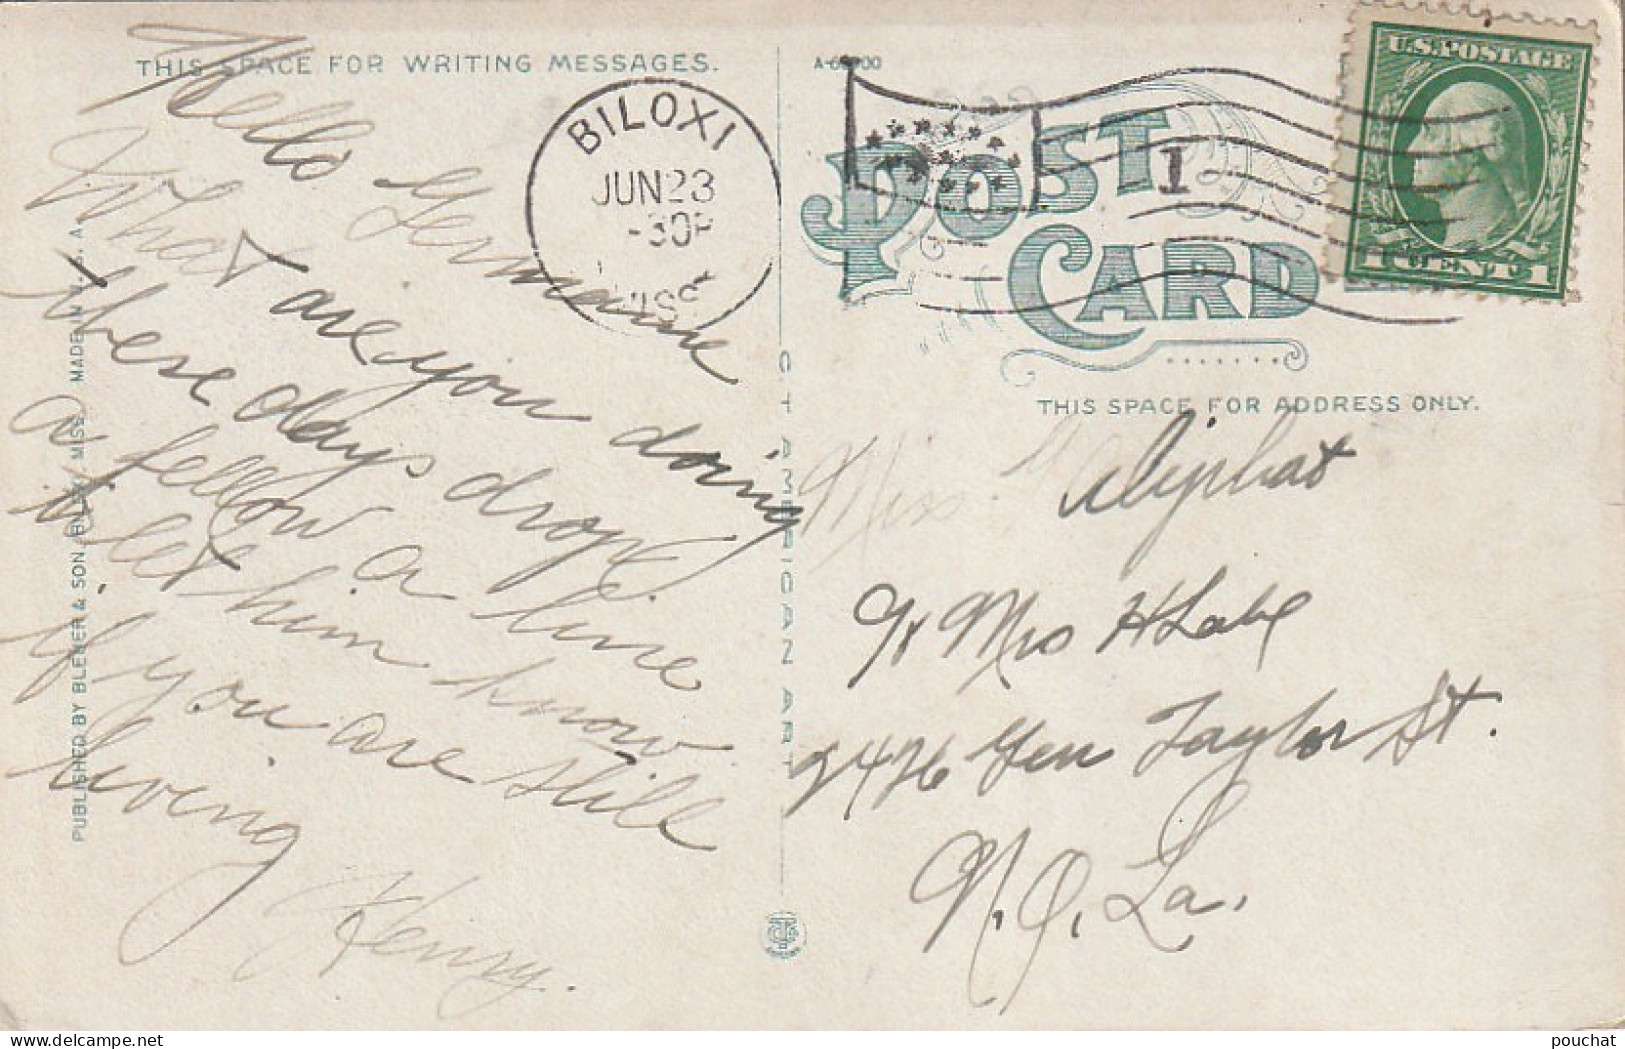 THIS SPACE FOR WRITING MESSAGES.
Hello Germaine
What are you doing
these days drop
a fellow a line
& let him know
if you are still
living
Henry.
PUBLISHED BY BLEUER & SON, BILOXI, MISS. MADE IN U. S. A.
BILOXI
JUN 23
-30P
MISS
C.T. AMERICAN ART
A-65900
POST CARD
1
U.S. POSTAGE
1 CENT 1
THIS SPACE FOR ADDRESS ONLY.
Miss Oliphat
c/o Mrs H Labe
2426 Gen Taylor St.
N.O. La.
pouchat